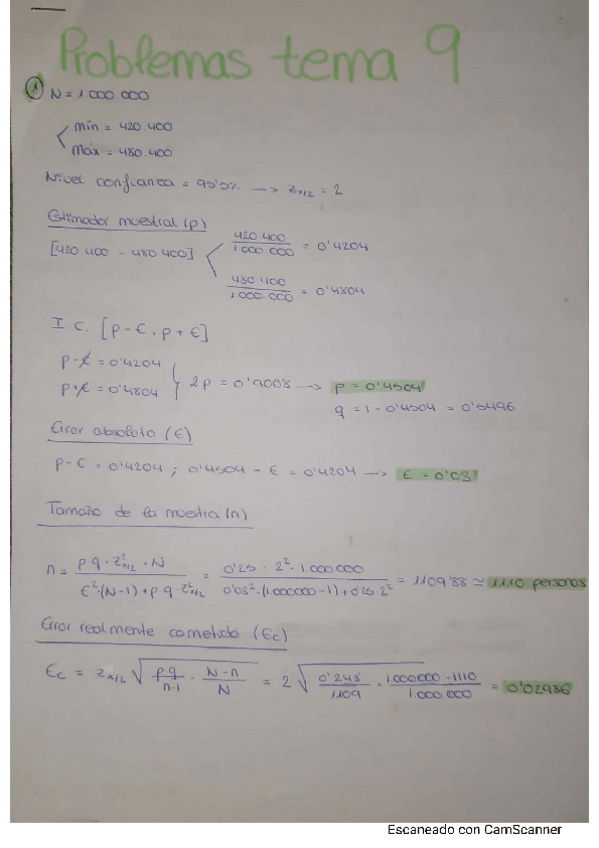 Problemas tema 9
① N = 1.000.000
mín = 420.400
máx = 480.400
Nivel confianza = 95'5% → Zα/2 = 2
Estimador muestral (p)
[420.400 - 480.400] 420.400/1.000.000 = 0'4204
480.400/1.000.000 = 0'4804
I.C. [p-ε, p+ε]
p-ε = 0'4204
p+ε = 0'4804 } 2p = 0'9008 → p = 0'4504
q = 1 - 0'4504 = 0'5496
Error absoluto (ε)
p-ε = 0'4204 ; 0'4504 - ε = 0'4204 → ε = 0'03
Tamaño de la muestra (n)
n = p q · Z²α/2 · N / ε²·(N-1) + p q · Z²α/2 = 0'25 · 2² · 1.000.000 / 0'03² · (1.000.000 - 1) + 0'25 · 2² = 1109'88 ≃ 1110 personas
Error realmente cometido (εc)
εc = Zα/2 √ p q / n-1 · N-n / N = 2 √ 0'248 / 1109 · 1.000.000 - 1110 / 1.000.000 = 0'02986
Escaneado con CamScanner